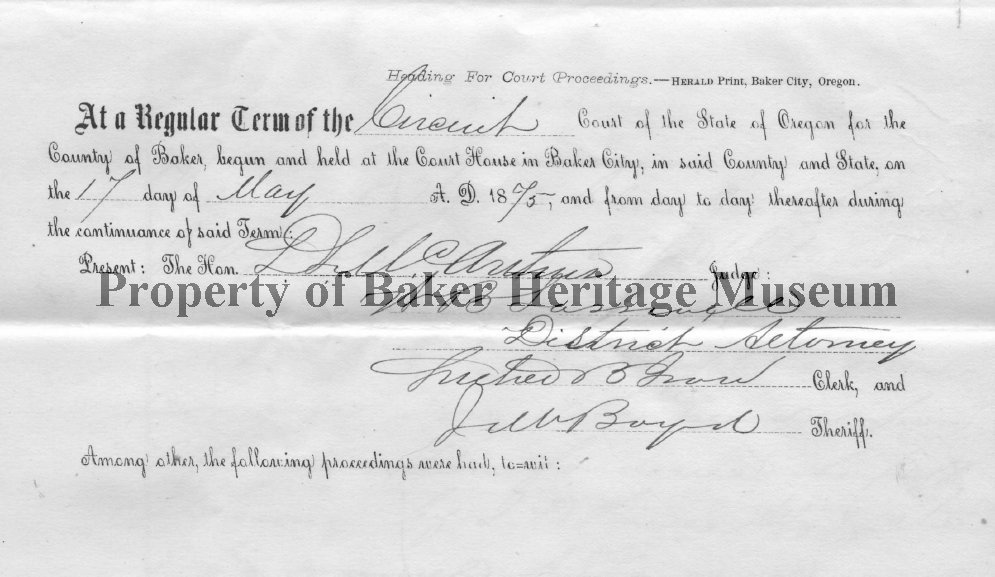 Heading For Court Proceedings.—HERALD Print, Baker City, Oregon.
At a Regular Term of the Circuit Court of the State of Oregon for the
County of Baker, begun and held at the Court House in Baker City, in said County and State, on
the 17 day of May A. D. 1875, and from day to day thereafter during
the continuance of said Term:
Present: The Hon. L. L. McArthur Judge:
Property of Baker Heritage Museum
District Attorney
B Clerk, and
Boyd Sheriff.
Among other, the following proceedings were had, to=wit: